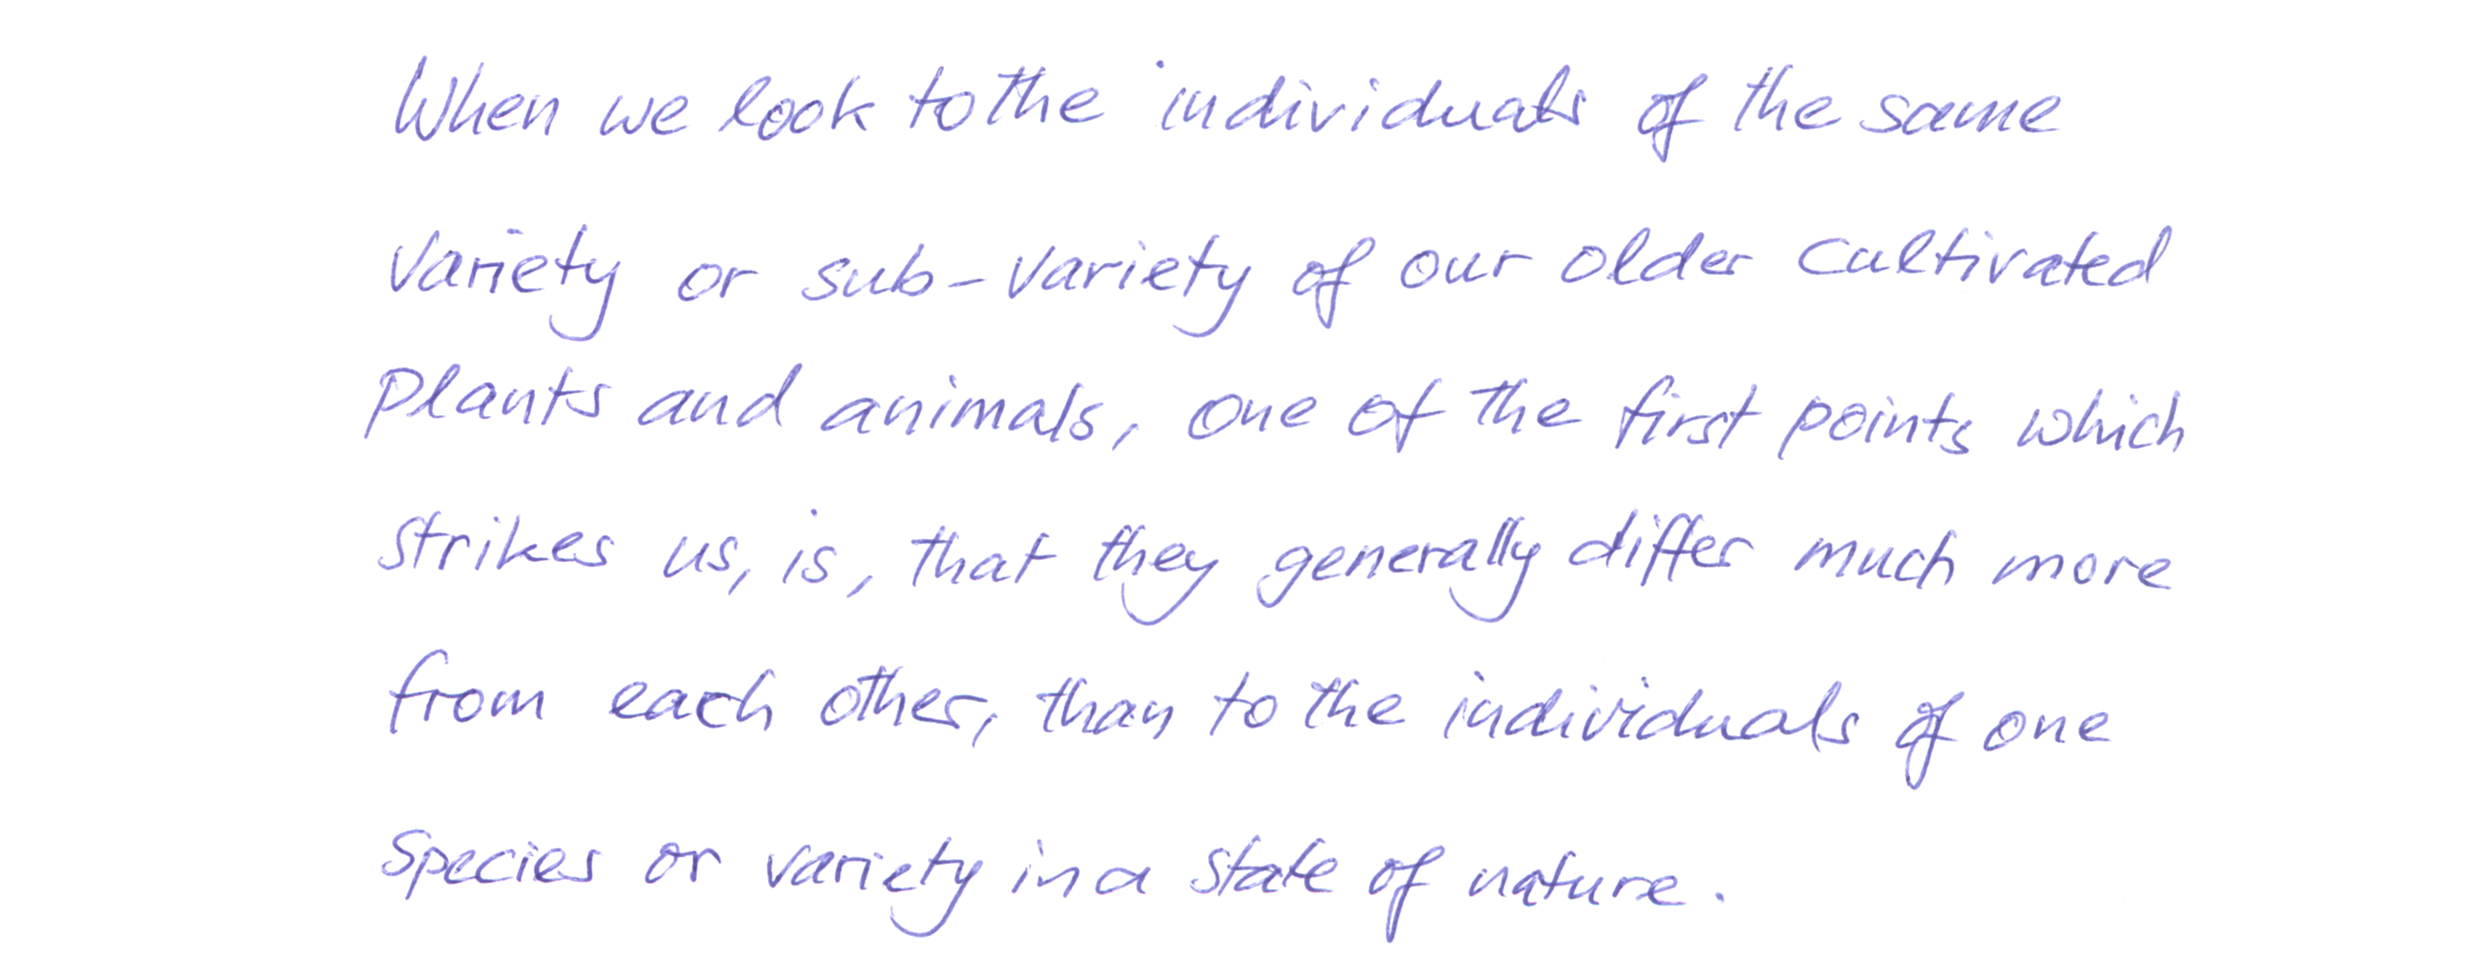 When we look to the individuals of the same
variety or sub-variety of our older cultivated
plants and animals, one of the first points which
strikes us, is, that they generally differ much more
from each other, than to the individuals of one
species or variety in a state of nature.